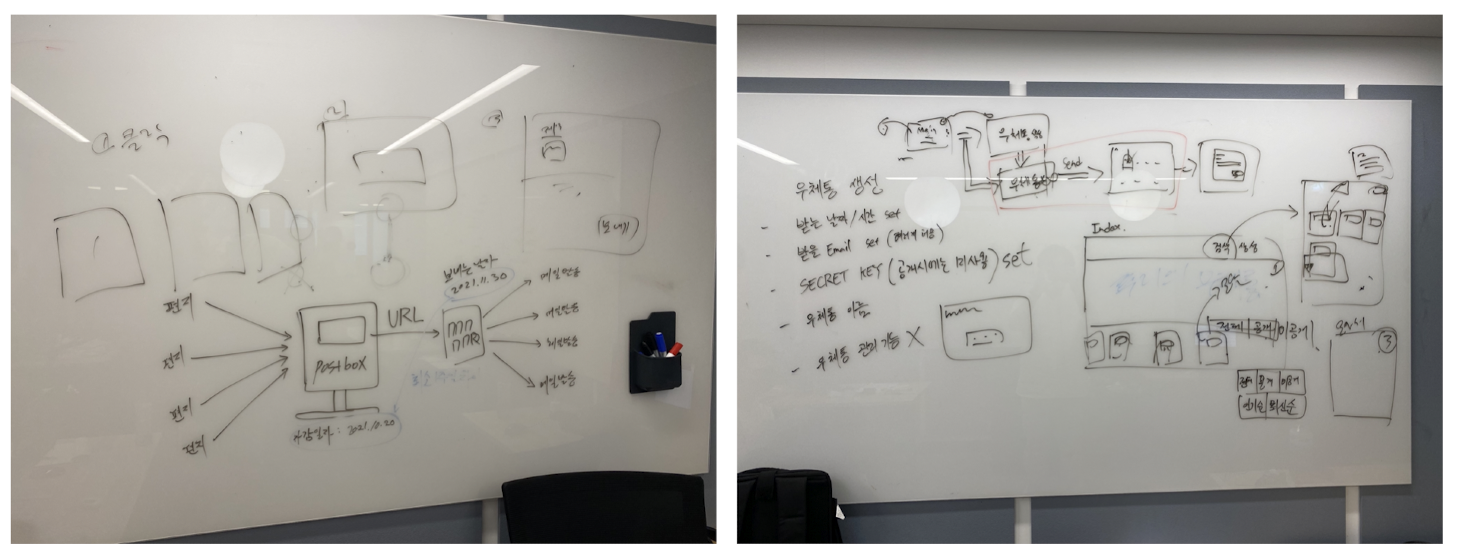 ① 클릭
2)
③
제목
보내기
편지
편지
편지
편지
Postbox
URL
보내는 날짜
2021.11.30
메일발송
메일발송
메일발송
메일발송
마감일자 : 2021.11.20
Main
우체통
Send
우체통 생성
- 받는 날짜/시간 set
- 받을 Email set
- SECRET KEY (공개시에는 미사용) set
- 우체통 이름
- 우체통 관리 기능 X
Index.
검색 생성
전체 공개 미공개
전체 공개 미공개
인기순 최신순
③